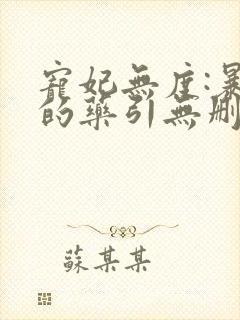 寵妃無度:暴
的藥引無刪
蘇某某